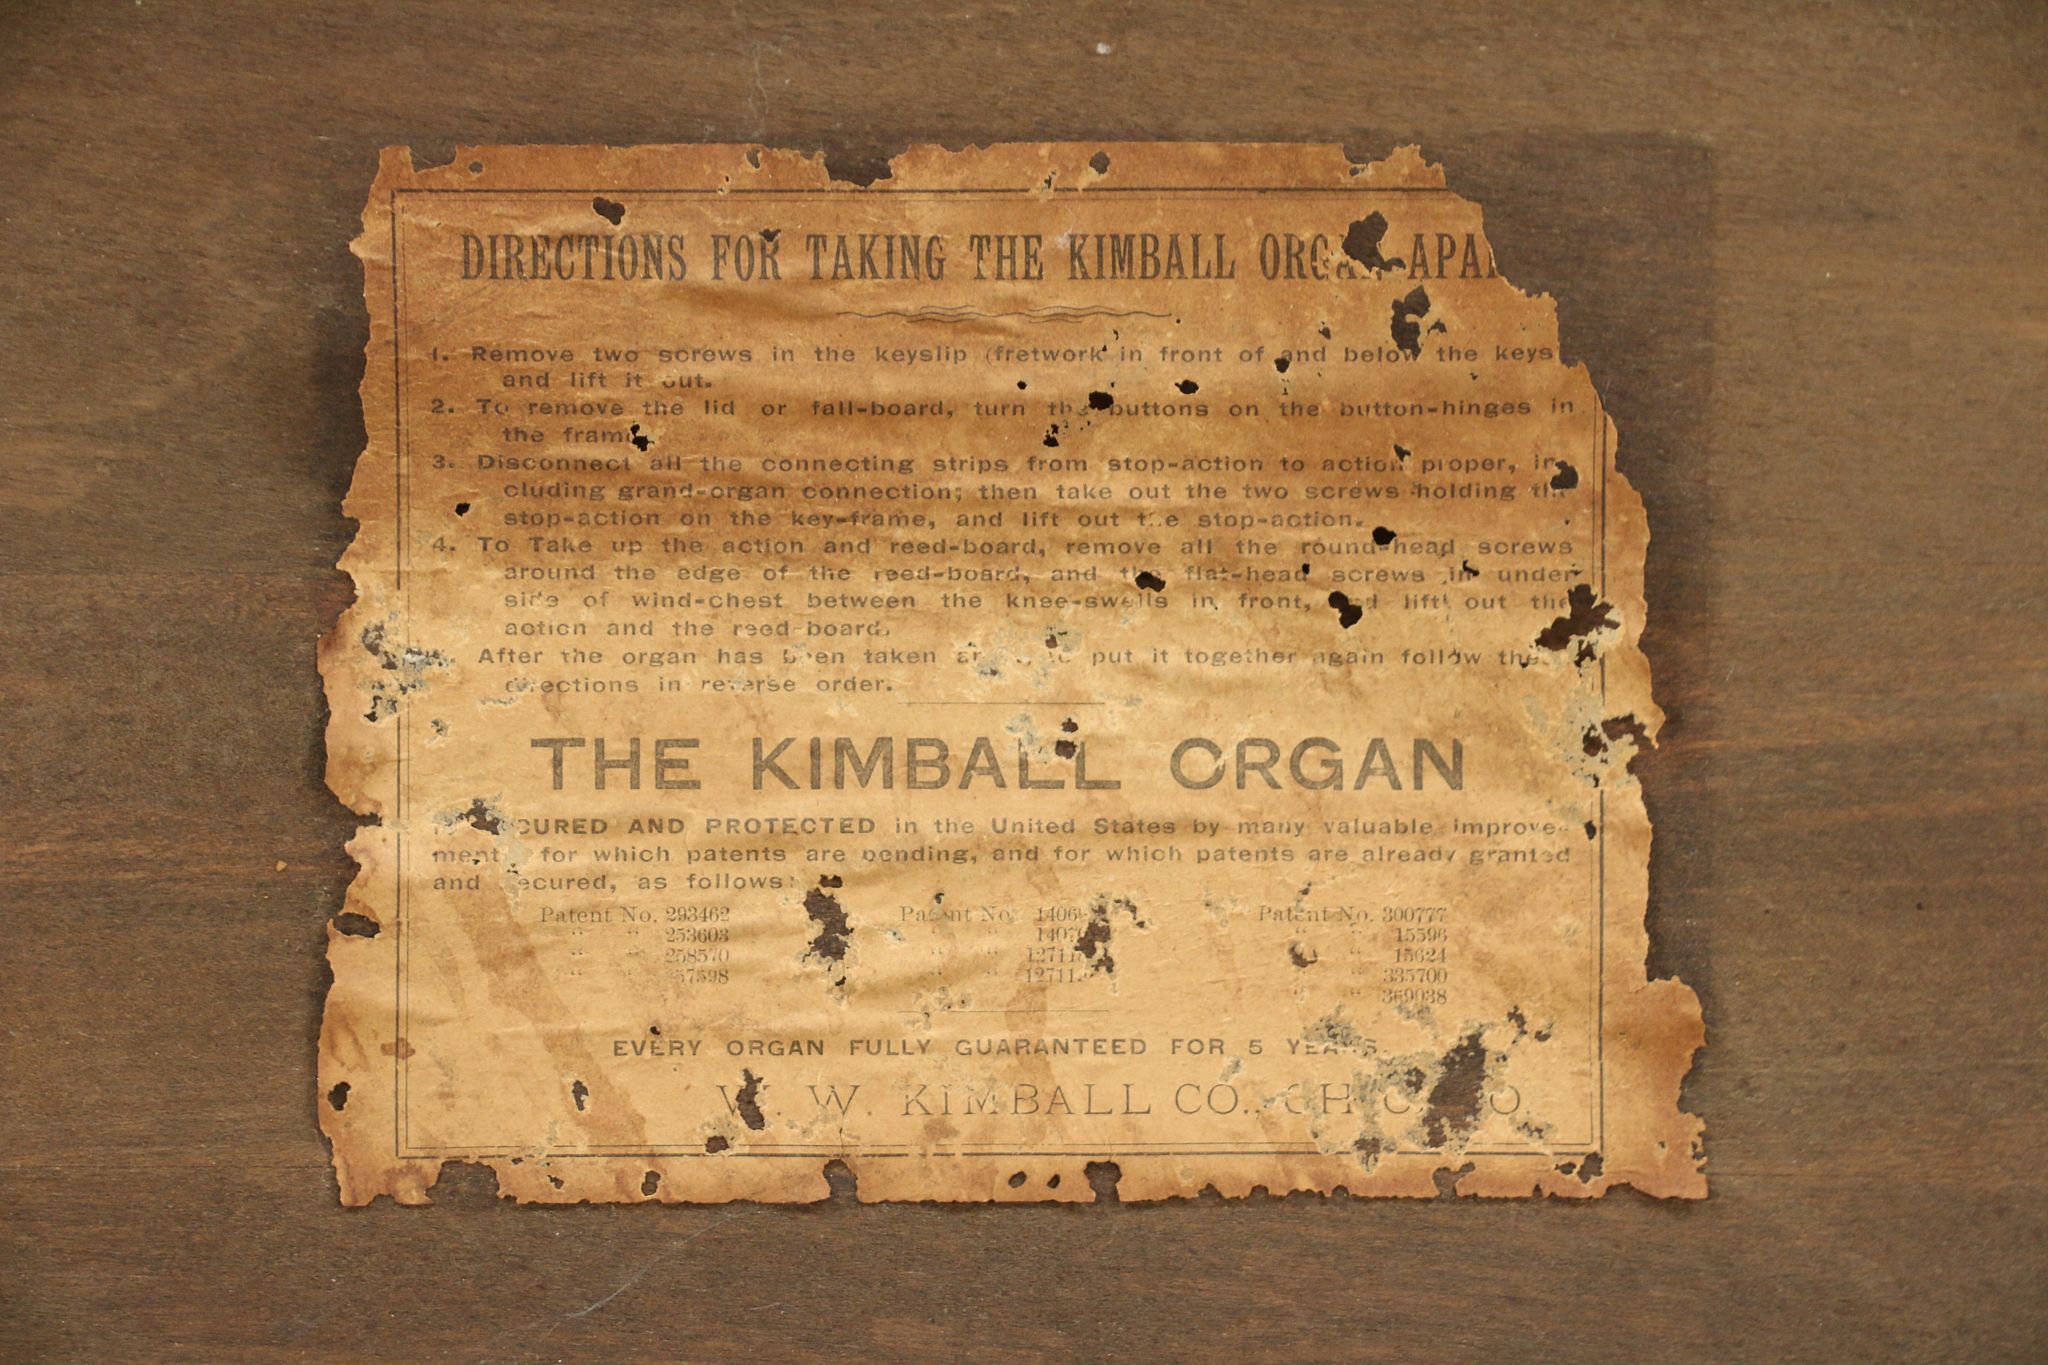 DIRECTIONS FOR TAKING THE KIMBALL ORGAN
1. Remove two screws in the keyslip (fretwork in front of and below the keys
and lift it out.
2. To remove the lid or fall-board, turn the buttons on the button-hinges in
the frame
3. Disconnect all the connecting strips from stop-action to action proper, in-
cluding grand-organ connection; then take out the two screws holding the
stop-action on the key-frame, and lift out the stop-action.
4. To Take up the action and reed-board, remove all the round-head screws
around the edge of the reed-board, and the flat-head screws in under
side of wind-chest between the knee-swells in front, and lift out the
action and the reed-board.
After the organ has been taken put it together again follow
directions in reverse order.
THE KIMBALL ORGAN
AND PROTECTED in the United States by many valuable improve-
for which patents are pending, and for which patents are already granted
and secured, as follows:
Patent No. 293462 Patent No. Patent No. 300777
" " 253603 " " " " 15596
" " 258570 " " " " 15624
" " " " " " 335700
" " 369038
EVERY ORGAN FULLY GUARANTEED FOR 5 YEARS.
W. W. KIMBALL CO., CHICAGO.